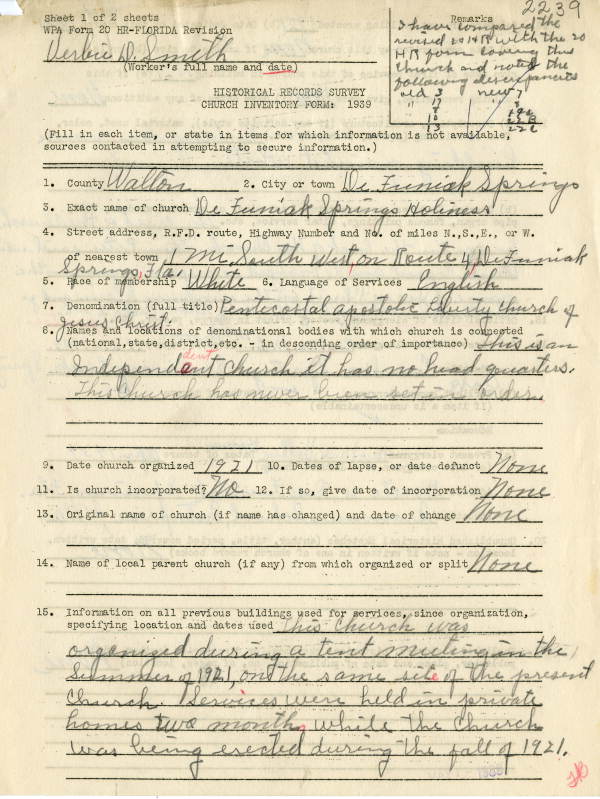 2239
Sheet 1 of 2 sheets
WPA Form 20 HR-FLORIDA Revision
Verbie D. Smith
(Worker's full name and date)
Remarks
I have compared the
revised 20 HR with the 20
HR form covering this
church and noted the
following discrepancies
old 3 new 7
" 17 " 8
" 8 " 19c
" 10 " 22B
" 13 " 22c
HISTORICAL RECORDS SURVEY
CHURCH INVENTORY FORM: 1939
(Fill in each item, or state in items for which information is not available,
sources contacted in attempting to secure information.)
1. County Walton 2. City or town De Funiak Springs
3. Exact name of church De Funiak Springs Holiness
4. Street address, R.F.D. route, Highway Number and No. of miles N.,S.,E., or W.
of nearest town 1 Mi. South West, on Route 4, De Funiak
Springs, Fla.
5. Race of membership White 6. Language of Services English
7. Denomination (full title) Pentecostal apostolic Liberty Church of
Jesus Christ.
8. Names and locations of denominational bodies with which church is connected
(national,state,district,etc. - in descending order of importance) This is an
Independent Church it has no head quarters.
This church has never been set in order.
9. Date church organized 1921 10. Dates of lapse, or date defunct None
11. Is church incorporated? No 12. If so, give date of incorporation None
13. Original name of church (if name has changed) and date of change None
14. Name of local parent church (if any) from which organized or split None
15. Information on all previous buildings used for services, since organization,
specifying location and dates used This Church was
organized during a tent meeting in the
Summer of 1921, on the same site of the present
Church. Services were held in private
homes two months while the Church
was being erected during the fall of 1921.